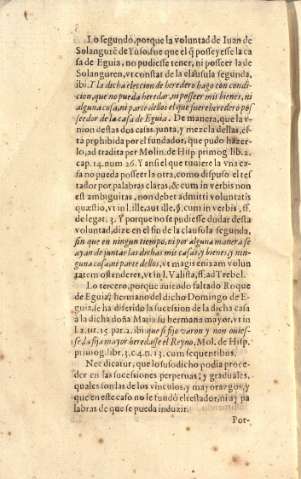 Lo segundo, porque la voluntad de Iuan de
Solangurẽ de Yuso, fue que el q̃ posseyesse la ca
sa de Eguia, no pudiesse tener, ni posseer la de
Solanguren, vt constat de la clausula segunda,
ibi. Y la dicha eleccion de heredero hago con condi-
cion, que no pueda heredar, ni posseer mis bienes, ni
alguna cosa, ni parte dellos el que fuere heredero pos-
seedor de la casa de Eguia. De manera, que la v-
nion destas dos casas junta, y mezcla dellas, es-
ta prohibida por el fundador, que pudo hazer-
lo, ad tradita per Molin. de Hisp. primog. lib. 2.
cap. 14. num. 26. Y ansi el que tuuiere la vna ca-
sa no pueda posseer la otra, como dispuso el tes
tador por palabras claras, & cum in verbis non
est ambiguitas, non debet admitti voluntatis
quæstio, vt in l. ille, aut ille, §. cum in verbis, ff.
de legat. 3. Y porque no se pudiesse dudar desta
voluntad, dize en el fin de la clausula segunda,
sin que en ningun tiempo, ni por alguna manera se
ayan de juntar las dichas mis casas y bienes, y nin-
guna cosa, ni parte dellos, vt magis enixam volun
tatem ostenderet, vt in l. Balista, ff. ad Trebel.
Lo tercero, porque auiendo faltado Roque
de Eguia, hermano del dicho Domingo de Egu-
ia, se ha diferido la succession de la dicha casa
à la dicha doña Maria su hermana mayor, vt in
l. 2. tit. 15. par. 2. ibi que si fijo varon y non ouies-
se, la fija mayor heredasse el Reyno, Mol. de Hisp.
primog. lib. 3. c. 4. n. 13. cum sequentibus.
Nec dicatur, que lo susodicho podia proce-
der en las successiones perpetuas, y graduales,
quales son las de los vinculos, y mayorazgos, y
que en este caso no se fundò el testador, ni ay pa
labras de que se pueda induzir.
Por-